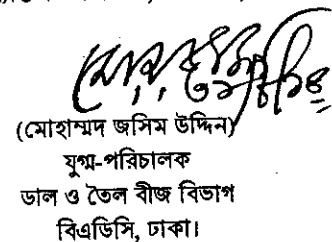 (মোহাম্মদ জসিম উদ্দিন)
যুগ্ম-পরিচালক
ডাল ও তৈল বীজ বিভাগ
বিএডিসি, ঢাকা।